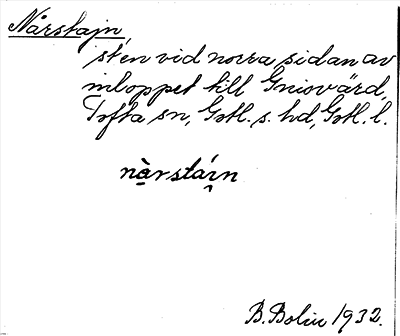 Nårstajn,
sten vid norra sidan av
inloppet till Gniovärd,
Tofta sn, Gotl. s. hd, Gotl. l.
nàrstáin
B. Bolin 1932.